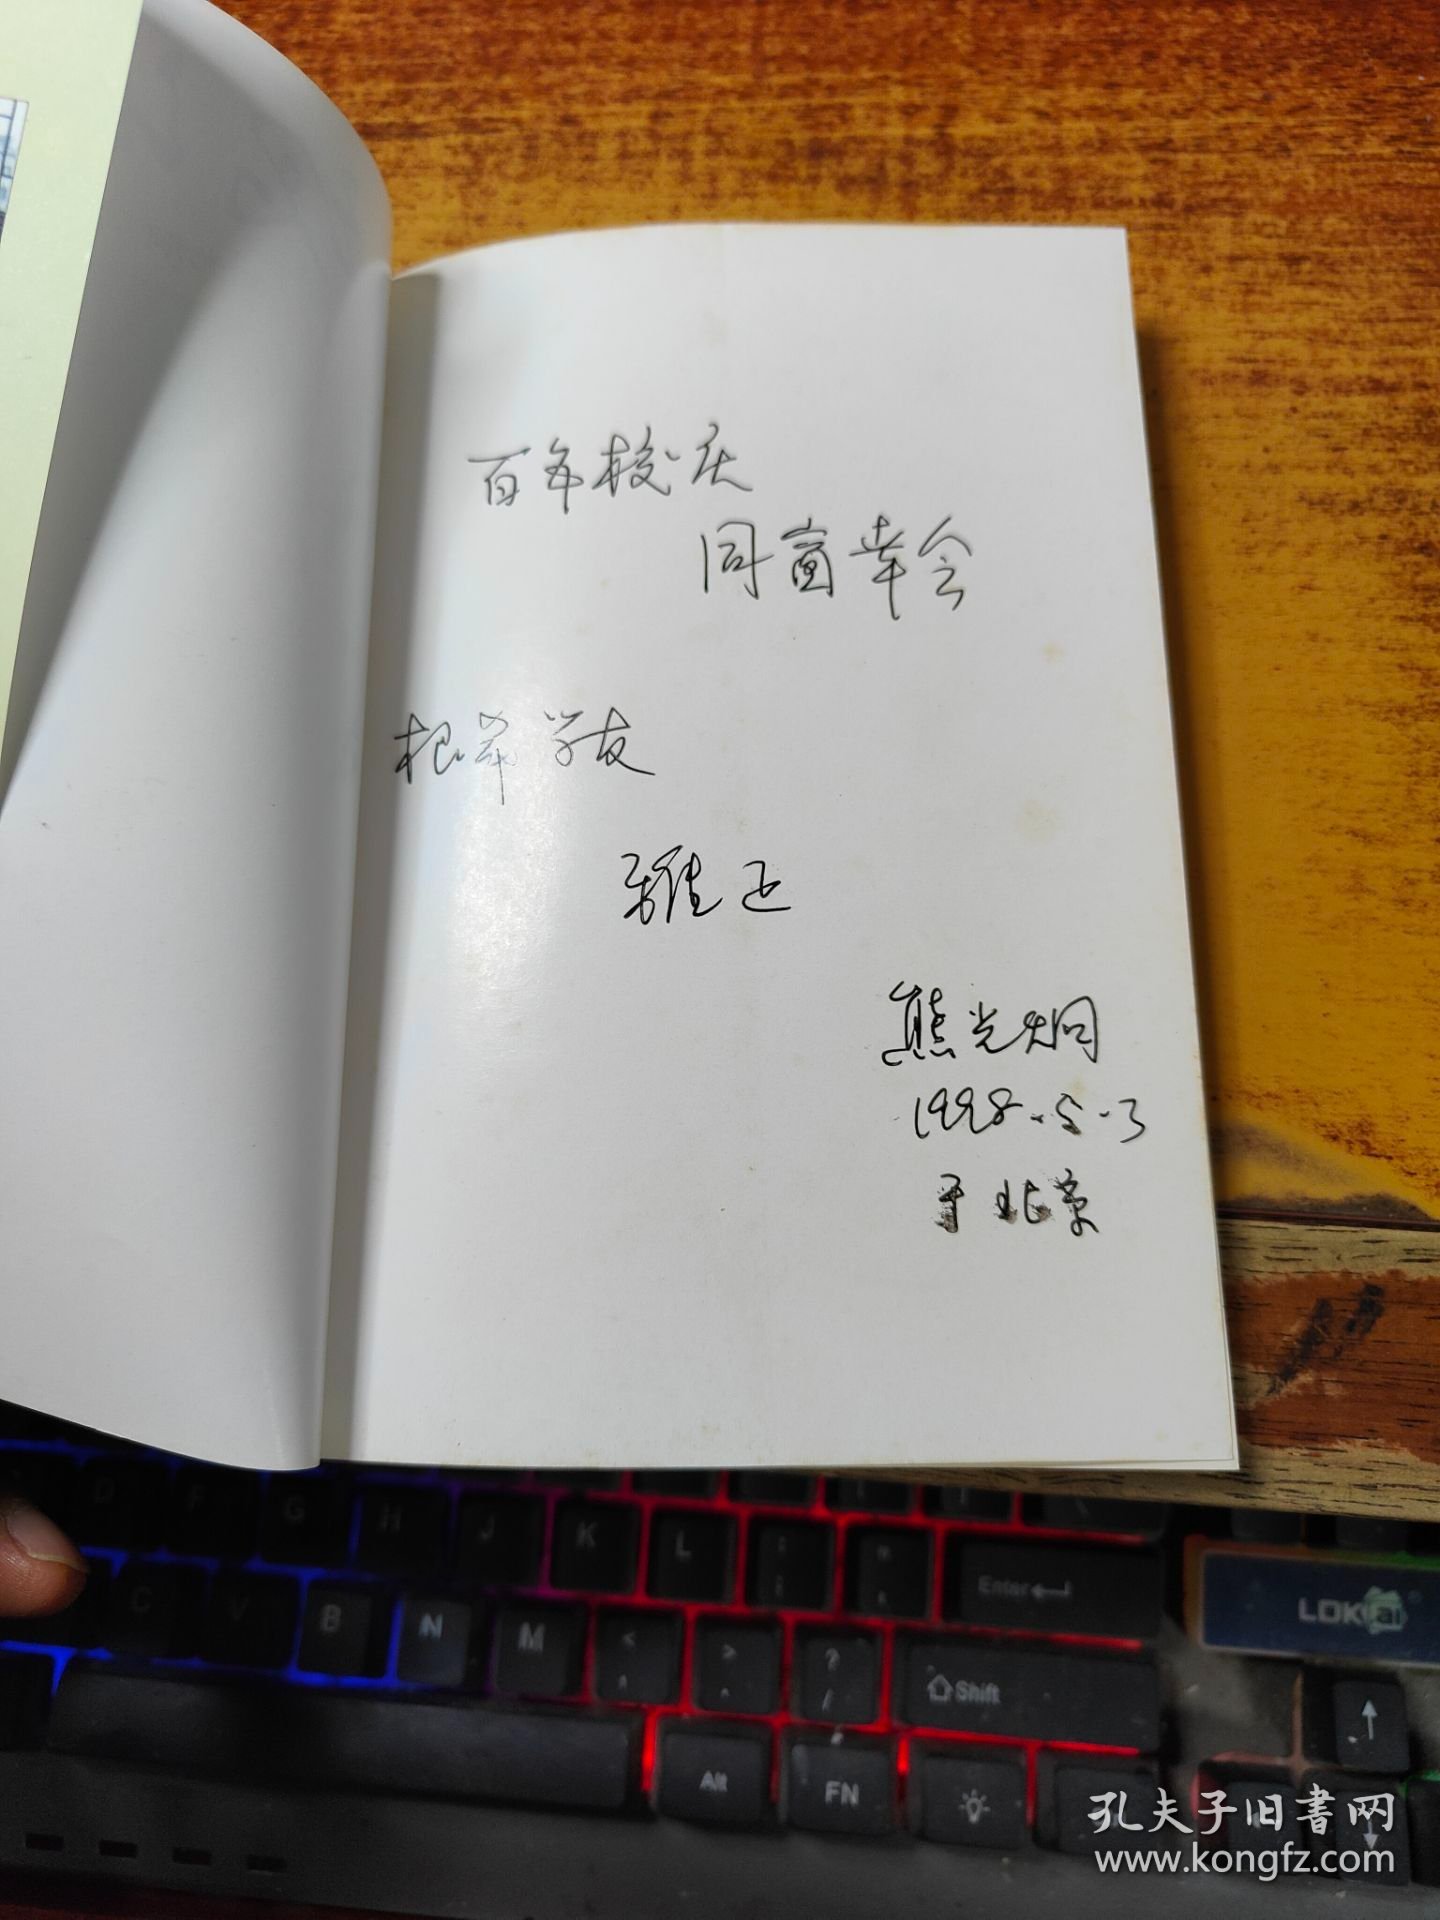 百年校庆
同窗幸会
根荣学友
雅正
熊光炯
1998.5.3
于北京
D F G H J K L
Enter
C V B N M < > ? /
Shift
Alt FN
LDK ai
孔夫子旧書网
www.kongfz.com